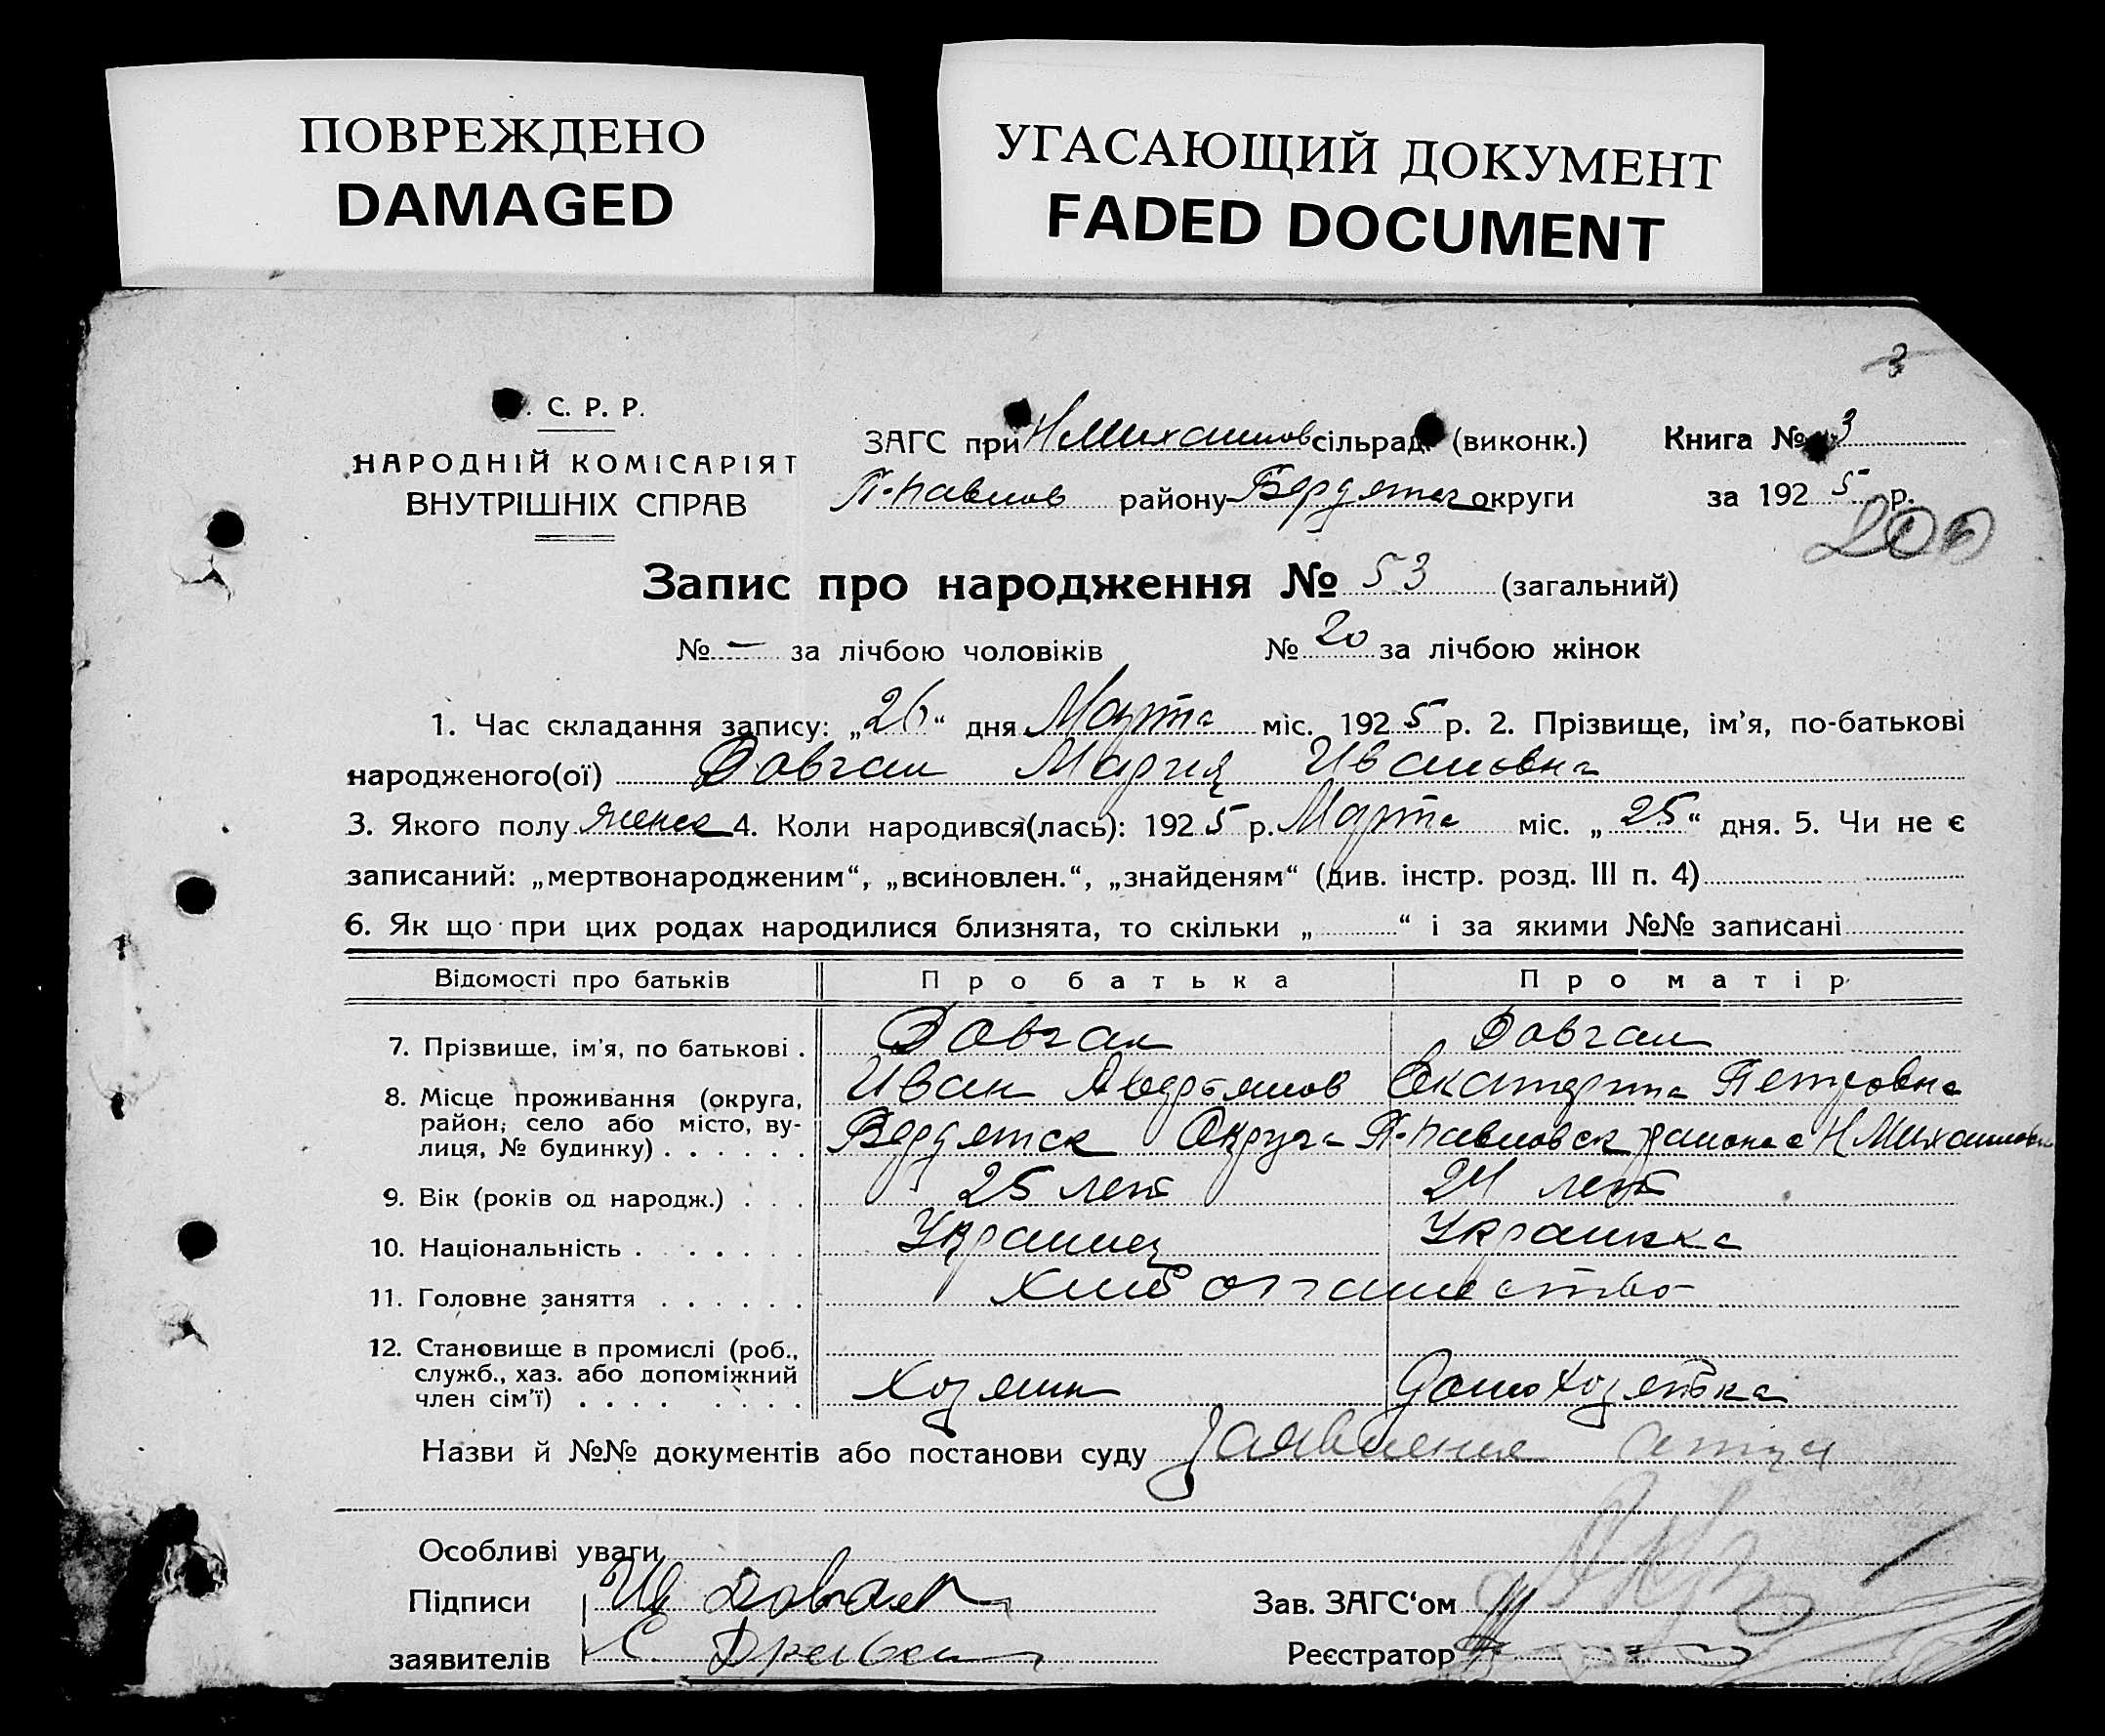 ПОВРЕЖДЕНО
DAMAGED
УГАСАЮЩИЙ ДОКУМЕНТ
FADED DOCUMENT
3
. С. Р. Р.
НАРОДНІЙ КОМІСАРІЯТ
ВНУТРІШНІХ СПРАВ
ЗАГС при НМихайлов сільрад. (виконк.) Книга № 3
П-Павлов району Бердянск округи за 1925 р.
200
Запис про народження № 53 (загальний)
№ — за лічбою чоловіків № 20 за лічбою жінок
1. Час складання запису: „26“ дня Марта міс. 1925 р. 2. Прізвище, ім'я, по-батькові
народженого(ої) Довгал Мария Ивановна
3. Якого полу женск 4. Коли народився(лась): 1925 р. Марта міс. „25“ дня. 5. Чи не є
записаний: „мертвонародженим“, „всиновлен.“, „знайденям“ (див. інстр. розд. III п. 4)
6. Як що при цих родах народилися близнята, то скільки „ “ і за якими №№ записані
Відомості про батьків Про батька Про матір
7. Прізвище, ім'я, по батькові . Довгал Довгал
Иван Екатерина Петровна
8. Місце проживання (округа, район; село або місто, вулиця, № будинку) . . . . . . Бердянск Округа П-Павловск района с НМихайловка
9. Вік (років од народж.) . . . 25 лет 24 лет
10. Національність . . . . . . . Украинец Украинка
11. Головне заняття . . . . . . Хлебопашество
12. Становище в промислі (роб.,
служб., хаз. або допоміжний
член сім'ї) . . . . . . . . Хозяин Домохозяйка
Назви й №№ документів або постанови суду Заявление отца
Особливі уваги
Підписи Ив Довгал
заявителів С
Зав. ЗАГС‘ом
Реєстратор